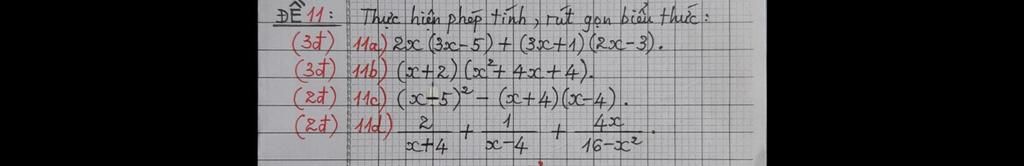 ĐỀ 11: Thực hiện phép tính, rút gọn biểu thức:
(3đ) 11a) 2x(3x-5) + (3x+1)(2x-3).
(3đ) 11b) (x+2)(x²+4x+4).
(2đ) 11c) (x-5)² - (x+4)(x-4).
(2đ) 11d) 2/(x+4) + 1/(x-4) + 4x/(16-x²).